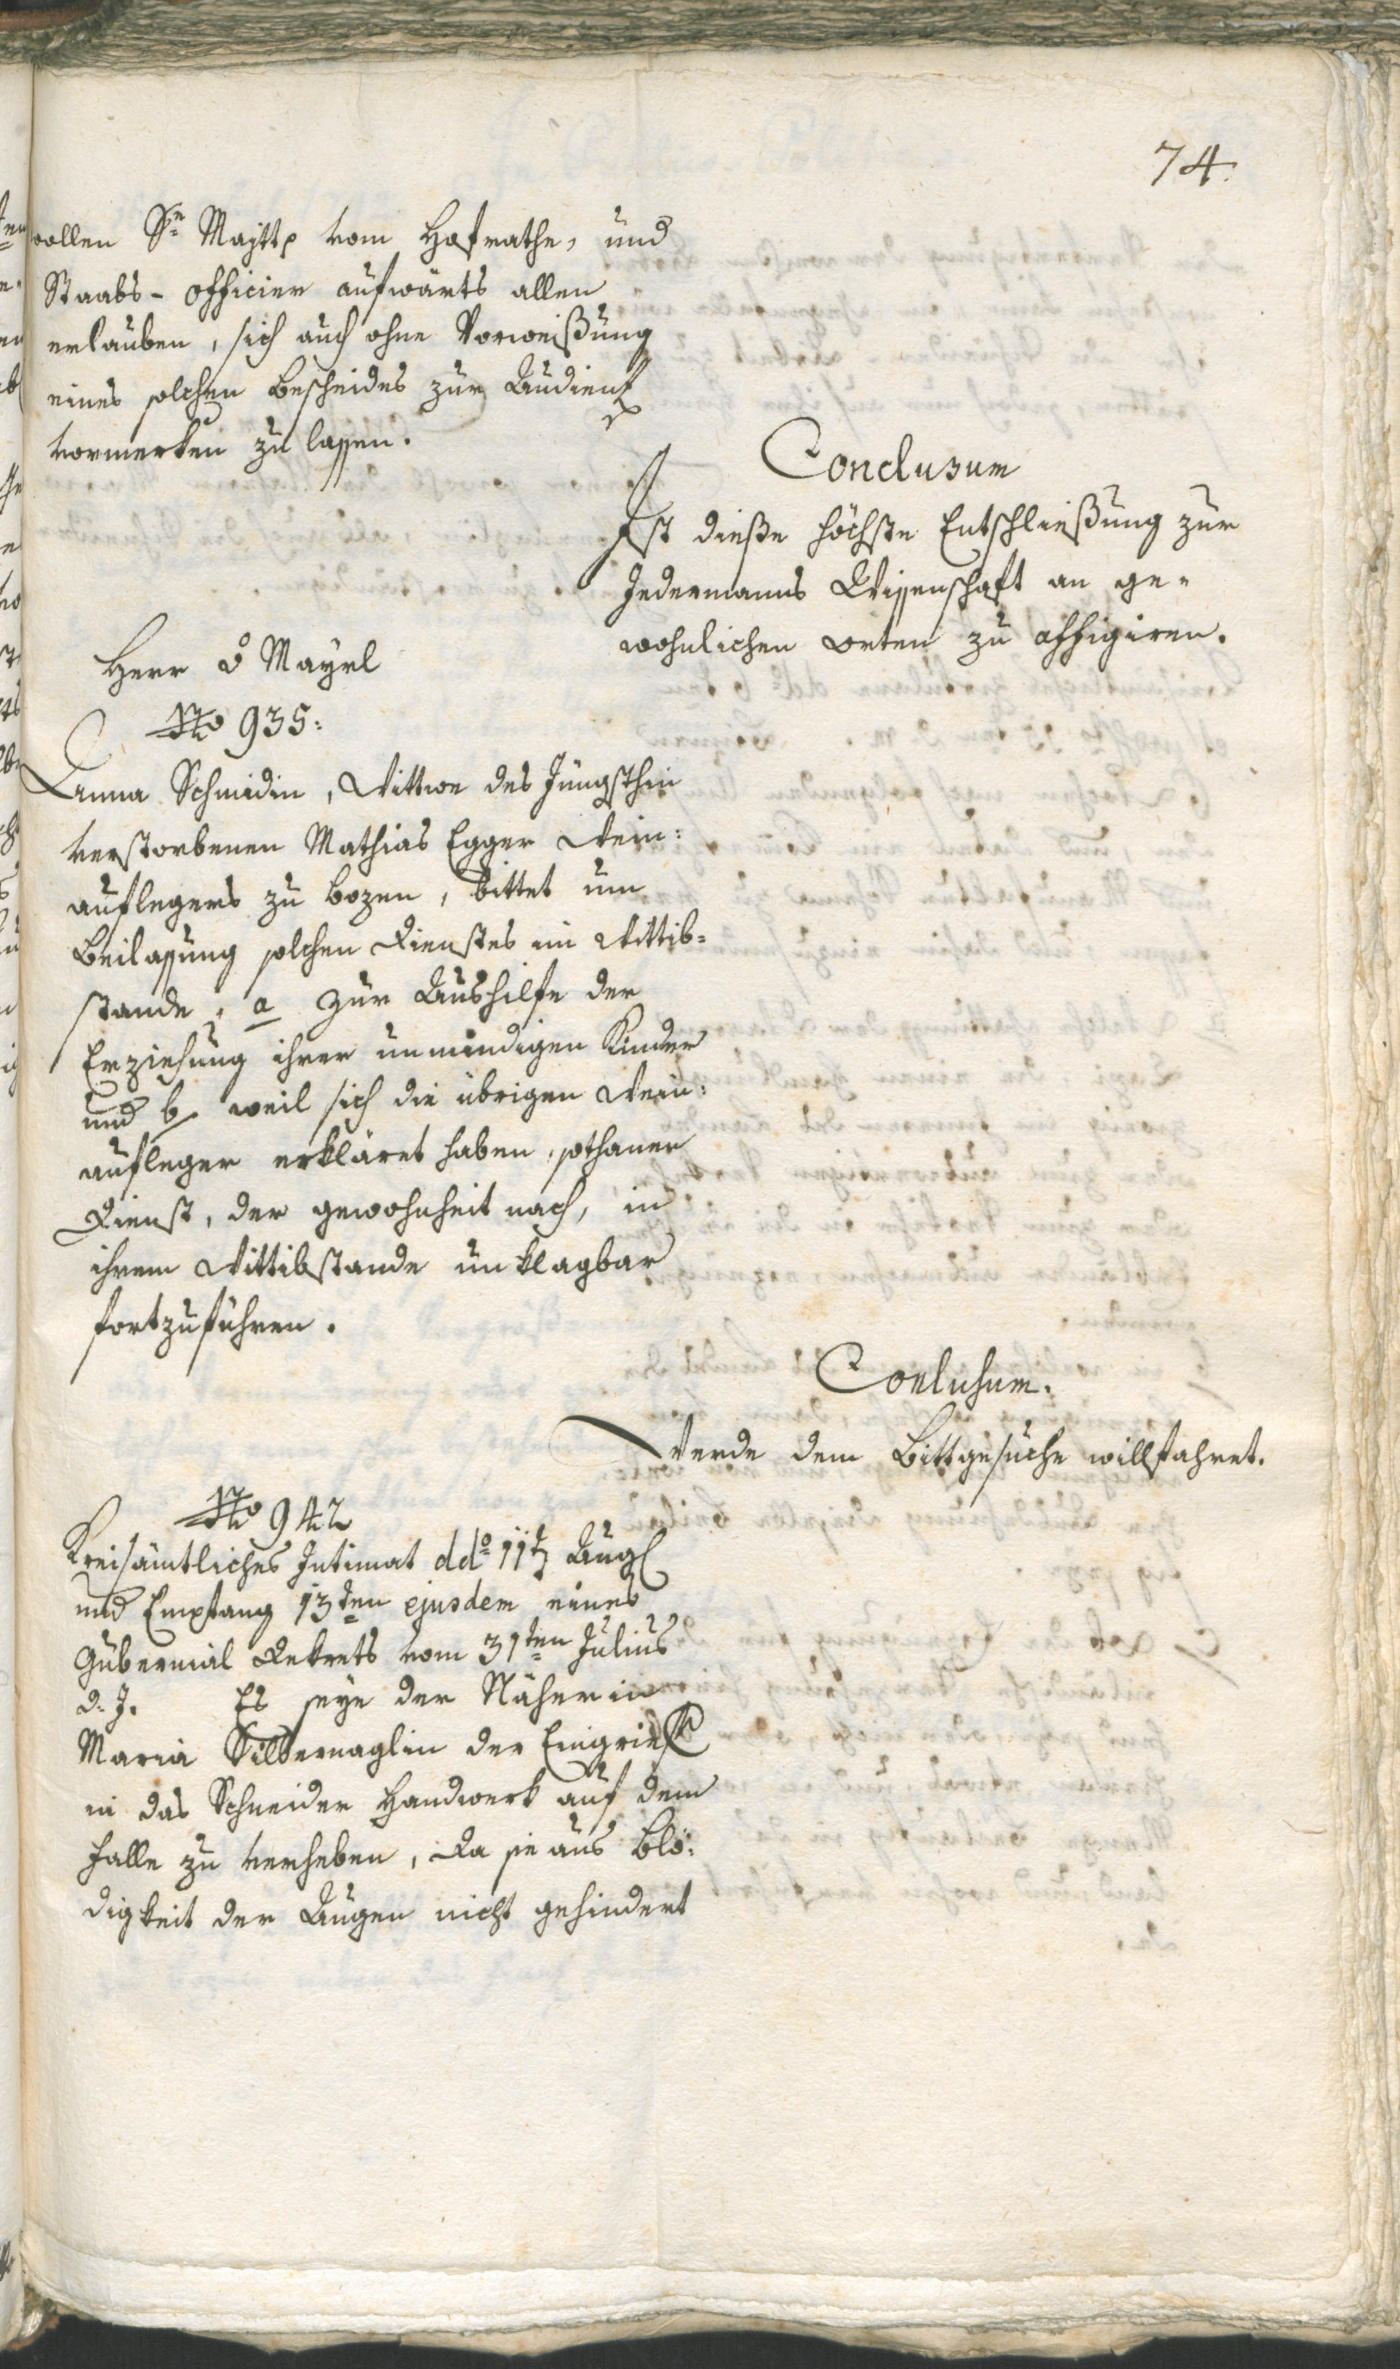 74.
wollen Se Majtt vom Hofrathe, und
Staabs- Officier aufwärts allen
erlauben, sich auch ohne Vorweißung
eines solchen Bescheides zur Audienz
vormerken zu lassen.
Conclusum
Ist dieße höchste Entschließung zur
Jedermanns Wissenschaft an ge-
wohnlichen orten zu affigiren.
Herr v Mayrl
No 935:
Anna Schmidin, Wittwe des Jüngsthin
verstorbenen Mathias Egger Wein:
auflegers zu Bozen, bittet um
Beilassung solchen Dienstes im Wittib-
stande, a zur Aushilfe der
Erziehung ihrer unmündigen Kinder
und b. weil sich die übrigen Wein:
aufleger erkläret haben, sothanen
Dienst, der gewohnheit nach, in
ihrem Wittibstande unklagbar
fortzuführen.
Conclusum.
Werde dem Bittgesuche willfahret.
No 942
Kreisämtliches Intimat ddo 11t Aug
und Empfang 13ten ejusdem eines
Gubernial Dekrets vom 31ten Julius
d. J. Es seye der Näherin
Maria Silbernaglin der Eingrief
in das Schneider Handwerk auf dem
Falle zu verheben, Da sie aus Blö:
digkeit der Augen nicht gehindert